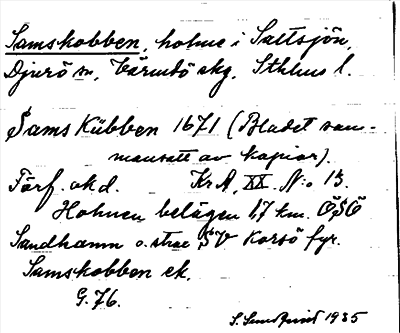 Samskobben, holme i Saltsjön,
Djurö sn, Värmdö skg, Sthlms l.
Sams Kübben 1671 (Bladet sam-
mansatt av kopior).
Förf. okd. KrA, XX. N:o 13.
Holmen belägen 1,7 km. ÖSÖ
Sandhamn o. strax SV Korsö fyr.
Samskobben ek.
G.76.
S. Lundqvist 1935